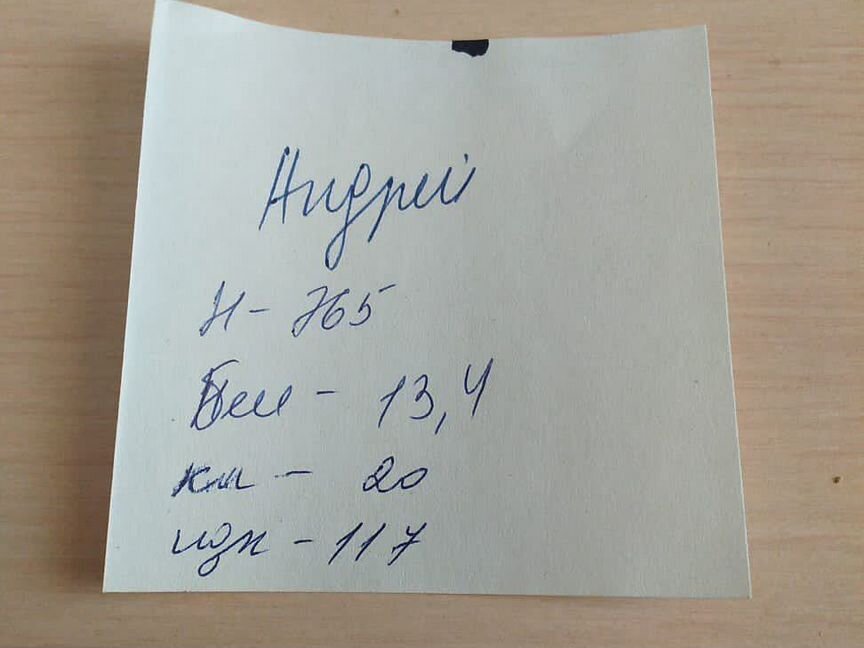 Андрей
Н - 765
Бел - 13,4
км - 20
изн - 117